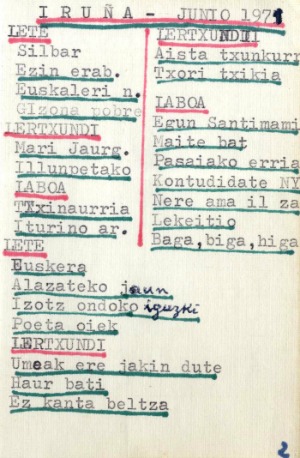 IRUÑA - JUNIO 1971
LETE
Silbar
Ezin erab.
Euskaleri n.
Gizona pobre
LERTXUNDI
Mari Jaurg.
Illunpetako
LABOA
TTxinaurria
Iturino ar.
LETE
Euskera
Alazateko jaun
Izotz ondoko iguzki
Poeta oiek
LERTXUNDI
Umeak ere jakin dute
Haur bati
Ez kanta beltza
LERTXUNDI
Aista txunkurr
Txori txikia
LABOA
Egun Santimami
Maite bat
Pasaiako erria
Kontudidate NY
Nere ama il za
Lekeitio
Baga, biga, higa
2